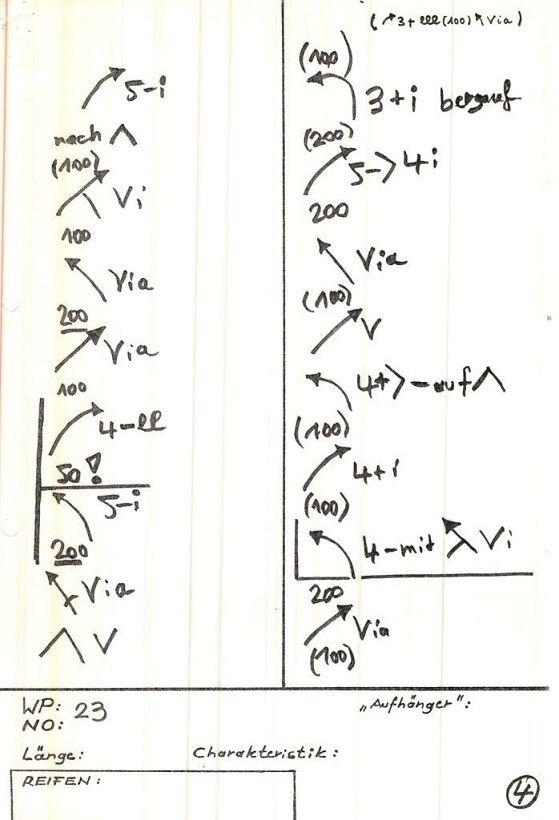 5-i
nach Λ
(100)
Vi
100
Via
200
Via
100
4-ll
50!
5-i
200
Via
Λ V
(↗3+lll(100)↖Via)
(100)
3+i bergauf
(200)
5->4i
200
Via
(100)
V
4+>-auf Λ
(100)
4+i
(100)
4-mit Vi
200
Via
(100)
WP: 23
NO:
Länge:
Charakteristik:
REIFEN:
„Aufhänger":
4